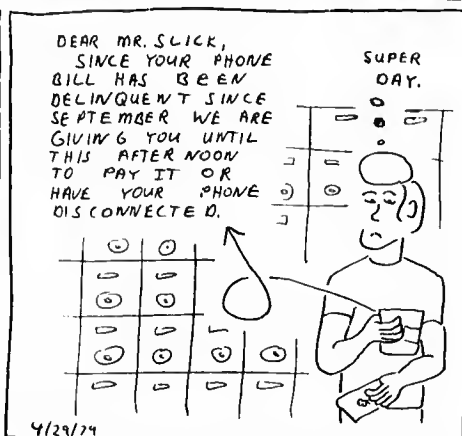 DEAR MR. SLICK,
SINCE YOUR PHONE
BILL HAS BEEN
DELINQUENT SINCE
SEPTEMBER WE ARE
GIVING YOU UNTIL
THIS AFTERNOON
TO PAY IT OR
HAVE YOUR PHONE
DISCONNECTED.
SUPER
DAY.
4/29/79